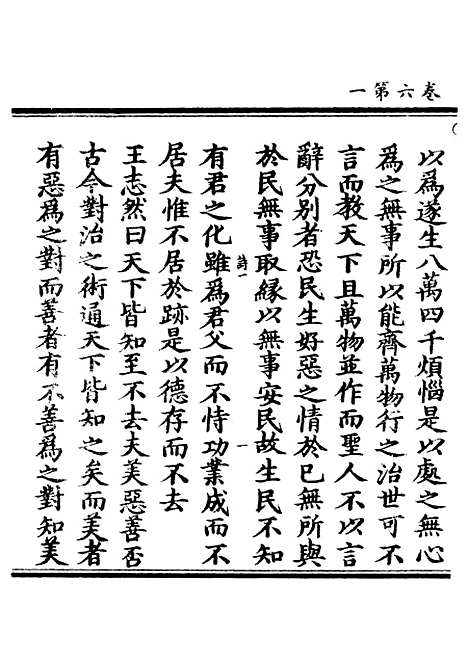 卷六第一
以爲遂生八萬四千煩惱是以處之無心
爲之無事所以能齊萬物行之治世可不
言而教天下且萬物並作而聖人不以言
辭分别者恐民生好惡之情於已無所與
於民無事取縁以無事安民故生民不知
詩一 一
有君之化雖爲君父而不恃功業成而不
居夫惟不居於跡是以德存而不去
王志然曰天下皆知至不去夫美惡善否
古今對治之術通天下皆知之矣而美者
有惡爲之對而善者有不善爲之對知美